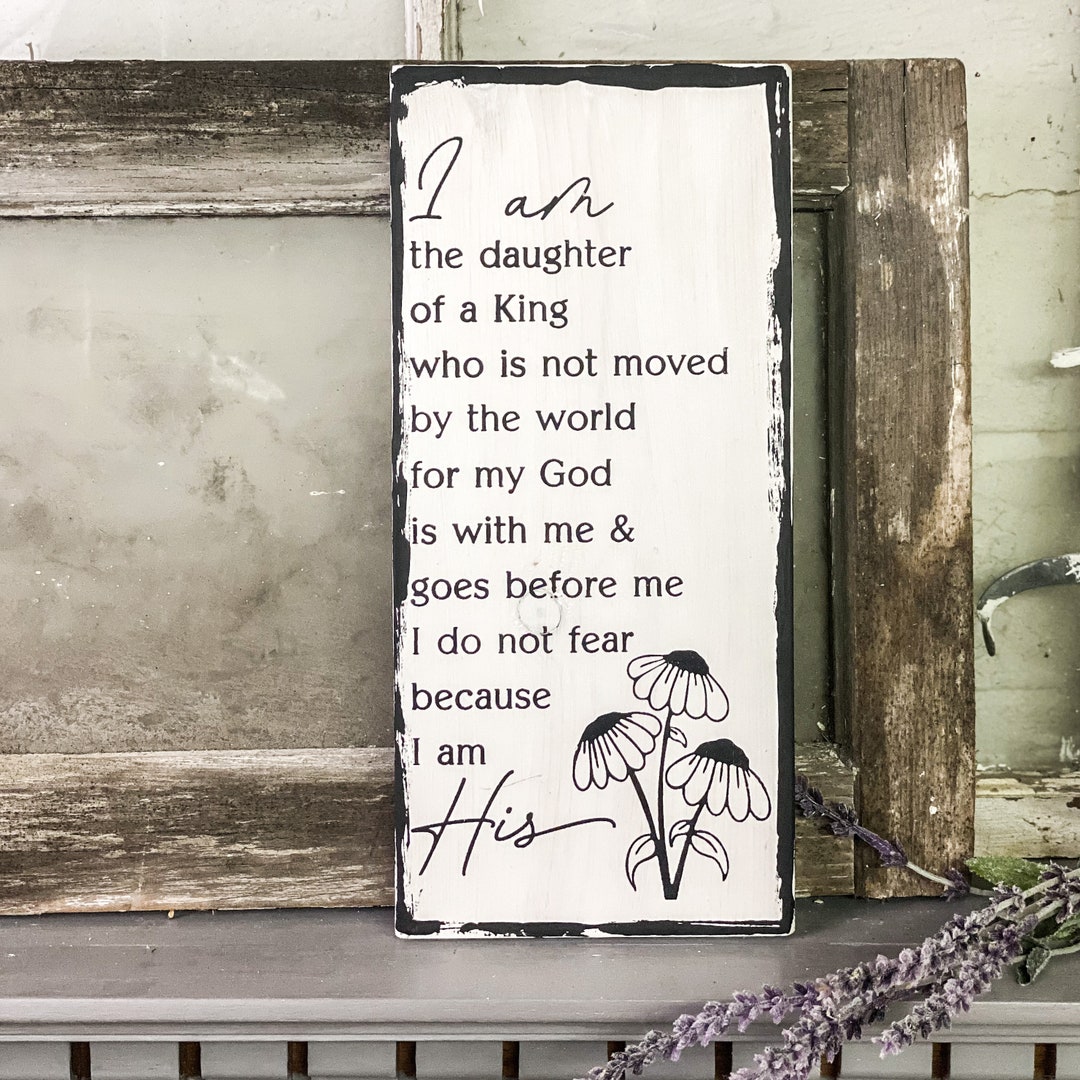 I am
the daughter
of a King
who is not moved
by the world
for my God
is with me &
goes before me
I do not fear
because
I am
His